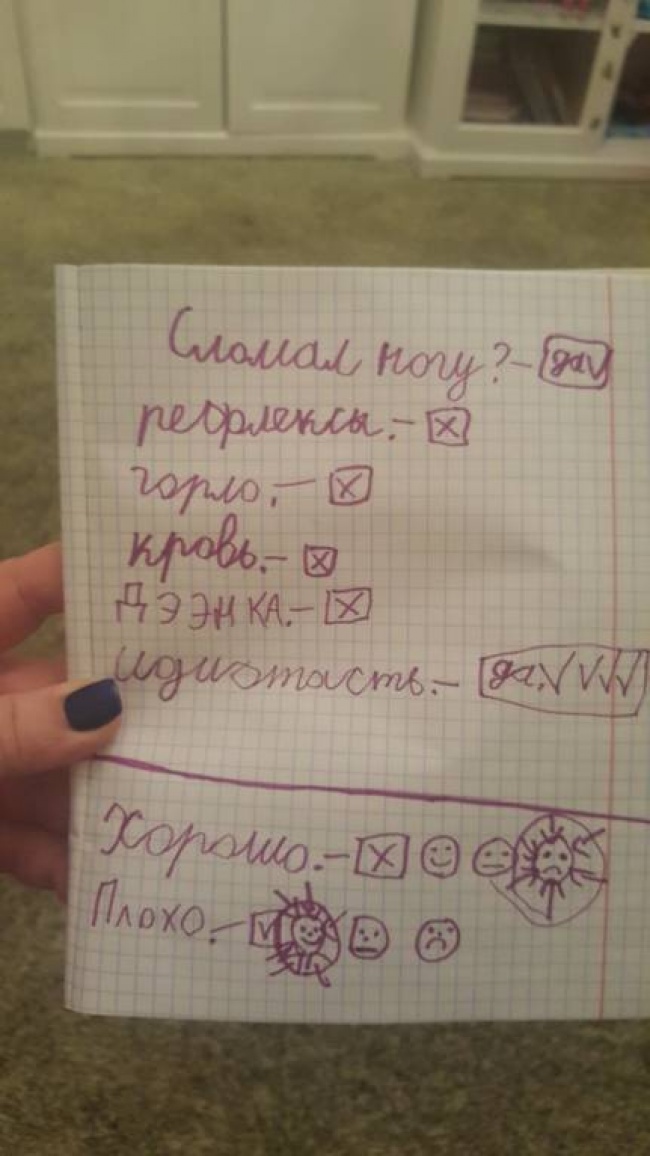 Сломал ногу? - да√
рефлексы. - X
горло. - X
кровь. - X
ДЭЭНКА. - X
идиотасть. - да.√√√√
Хорошо. - X
Плохо. - √